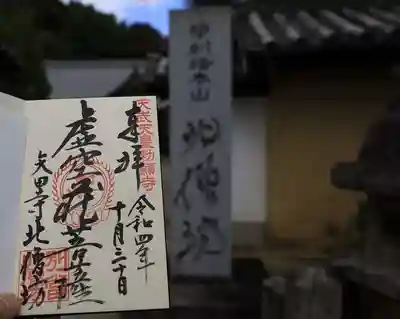 天武天皇勅願寺
奉拝
令和四年
十月三十日
虚空蔵菩薩
矢田寺北僧坊
別格本山
北僧坊